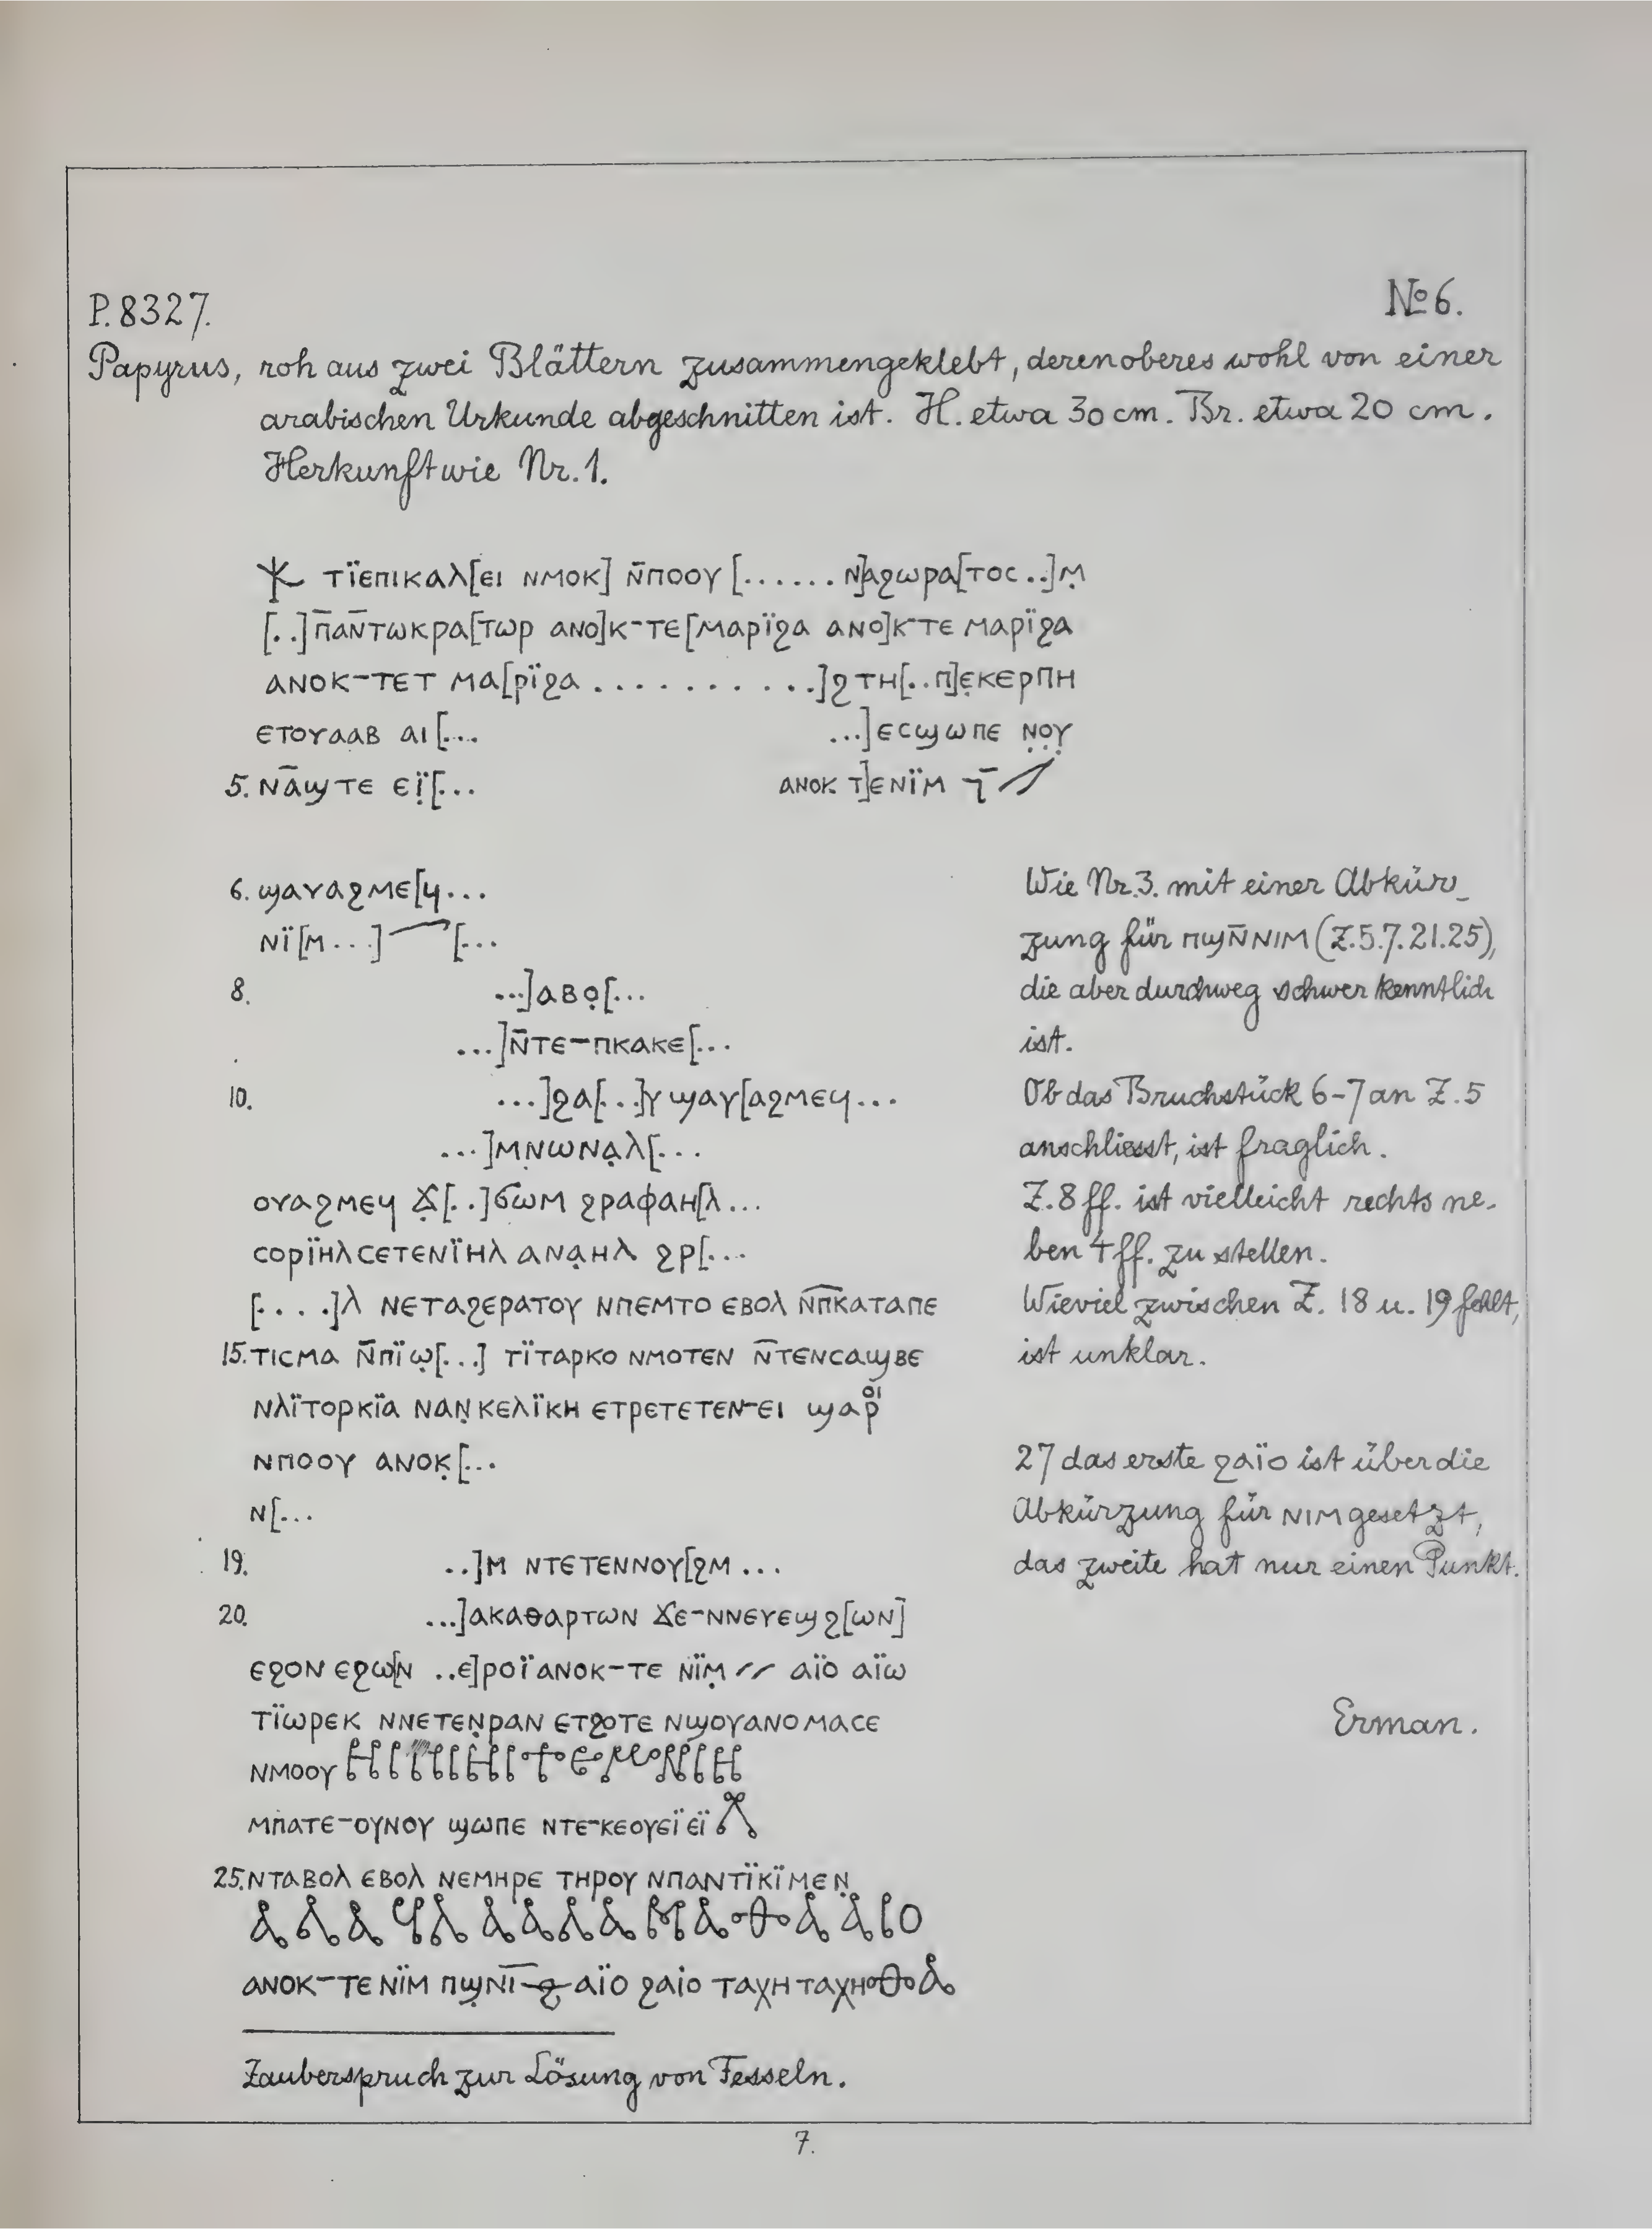 P. 8327.
№ 6.
Papyrus, roh aus zwei Blättern zusammengeklebt, deren oberes wohl von einer
arabischen Urkunde abgeschnitten ist. H. etwa 30 cm. Br. etwa 20 cm.
Herkunft wie Nr. 1.
ⲧⲓ̈ⲉⲡⲓⲕⲁⲗ[ⲉⲓ ⲛⲙⲟⲕ] ⲛ̄ⲡⲟⲟⲩ [...... ⲛ]ⲁϩⲱⲣⲁ[ⲧⲟⲥ ..]ⲙ̣
[..]ⲡ̄ⲁⲛ̄ⲧⲱⲕⲣⲁ[ⲧⲱⲣ ⲁⲛⲟ]ⲕ-ⲧⲉ[ⲙⲁⲣⲓ̈ϩⲁ ⲁⲛⲟ]ⲕ-ⲧⲉ ⲙⲁⲣⲓ̈ϩⲁ
ⲁⲛⲟⲕ-ⲧⲉⲧ ⲙⲁ[ⲣⲓ̈ϩⲁ ...........]ϩⲧⲏ[..ⲡ]ⲉ̣ⲕⲉⲣⲡⲏ
ⲉⲧⲟⲩⲁⲁⲃ ⲁⲓ[... ...]ⲉⲥϣⲱⲡⲉ ⲛ̣ⲟ̣ⲩ̣
5. ⲛⲁ̄ϣⲧⲉ ⲉⲓ̣̈[... ⲁⲛⲟⲕ ⲧ]ⲉⲛⲓ̈ⲙ
6. ϣⲁⲩⲁϩⲙⲉ[ϥ...
ⲛⲓ̈[ⲙ...] [...
8. ...]ⲁⲃⲟ̣[...
...]ⲛ̄ⲧⲉ-ⲡⲕⲁⲕⲉ[...
10. ...]ϩⲁ[..]ⲩ ϣⲁⲩ[ⲁϩⲙⲉϥ...
...]ⲙⲛ̣ⲱⲛⲁ̣ⲗ[...
ⲟⲩⲁϩⲙⲉϥ ϫ̣[..]ϭⲱⲙ ϩⲣⲁⲫⲁⲏ[ⲗ...
ⲥⲟⲣⲓ̈ⲏⲗ ⲥⲉⲧⲉⲛⲓ̈ⲏⲗ ⲁⲛⲁ̣ⲏⲗ ϩⲣ[...
[....]ⲗ ⲛⲉⲧⲁϩⲉⲣⲁⲧⲟⲩ ⲛⲡⲉⲙⲧⲟ ⲉⲃⲟⲗ ⲛ̄ⲡ̄ⲕⲁⲧⲁⲡⲉ
15. ⲧⲓⲥⲙⲁ ⲛ̄ⲡⲓ̈ⲱ̣[...] ⲧⲓ̈ⲧⲁⲣⲕⲟ ⲛⲙⲟⲧⲉⲛ ⲛ̄ⲧⲉⲛⲥⲁϣⲃⲉ
ⲛⲗⲓ̈ⲧⲟⲣⲕⲓ̈ⲁ ⲛⲁⲛ̣ⲕⲉⲗⲓ̈ⲕⲏ ⲉⲧⲣⲉⲧⲉⲧⲉⲛ-ⲉⲓ ϣⲁⲣⲟⲓ̈
ⲛⲡⲟⲟⲩ ⲁⲛⲟⲕ̣[...
ⲛ[...
19. ..]ⲙ ⲛⲧⲉⲧⲉⲛⲛⲟⲩ[ϩⲙ ...
20. ...]ⲁⲕⲁⲑⲁⲣⲧⲱⲛ ϫⲉ-ⲛⲛⲉⲩⲉϣϩ[ⲱⲛ]
ⲉϩⲟⲛ ⲉϩⲱ[ⲛ ..ⲉ]ⲣⲟⲓ̈ ⲁⲛⲟⲕ-ⲧⲉ ⲛⲓ̈ⲙ̣ // ⲁⲓ̈ⲟ ⲁⲓ̈ⲱ
ⲧⲓ̈ⲱⲣⲉⲕ ⲛⲛⲉⲧⲉⲛ̣ⲣⲁⲛ ⲉⲧϩⲟⲧⲉ ⲛϣⲟⲩⲁⲛⲟⲙⲁⲥⲉ
ⲛⲙⲟⲟⲩ
ⲙⲡⲁⲧⲉ-ⲟⲩⲛⲟⲩ ϣⲱⲡⲉ ⲛⲧⲉ-ⲕⲉⲟⲩⲉⲓ̈ ⲉⲓ̈
25. ⲛⲧⲁⲃⲟⲗ ⲉⲃⲟⲗ ⲛⲉⲙⲏⲣⲉ ⲧⲏⲣⲟⲩ ⲛⲡⲁⲛⲧⲓ̈ⲕⲓ̈ⲙⲉⲛ̣
ⲁⲛⲟⲕ-ⲧⲉ ⲛⲓ̈ⲙ ⲡϣ̣ⲛⲓ̄ ⲁⲓ̈ⲟ ϩⲁⲓⲟ ⲧⲁⲭⲏ ⲧⲁⲭⲏ
Wie Nr. 3. mit einer Abkür-
zung für ⲡϣⲛ̄ⲛⲓⲙ (Z. 5. 7. 21. 25),
die aber durchweg schwer kenntlich
ist.
Ob das Bruchstück 6-7 an Z. 5
anschliesst, ist fraglich.
Z. 8 ff. ist vielleicht rechts ne-
ben 4 ff. zu stellen.
Wieviel zwischen Z. 18 u. 19 fehlt,
ist unklar.
27 das erste ϩⲁⲓ̈ⲟ ist über die
Abkürzung für ⲛⲓⲙ gesetzt,
das zweite hat nur einen Punkt.
Erman.
Zauberspruch zur Lösung von Fesseln.
7.